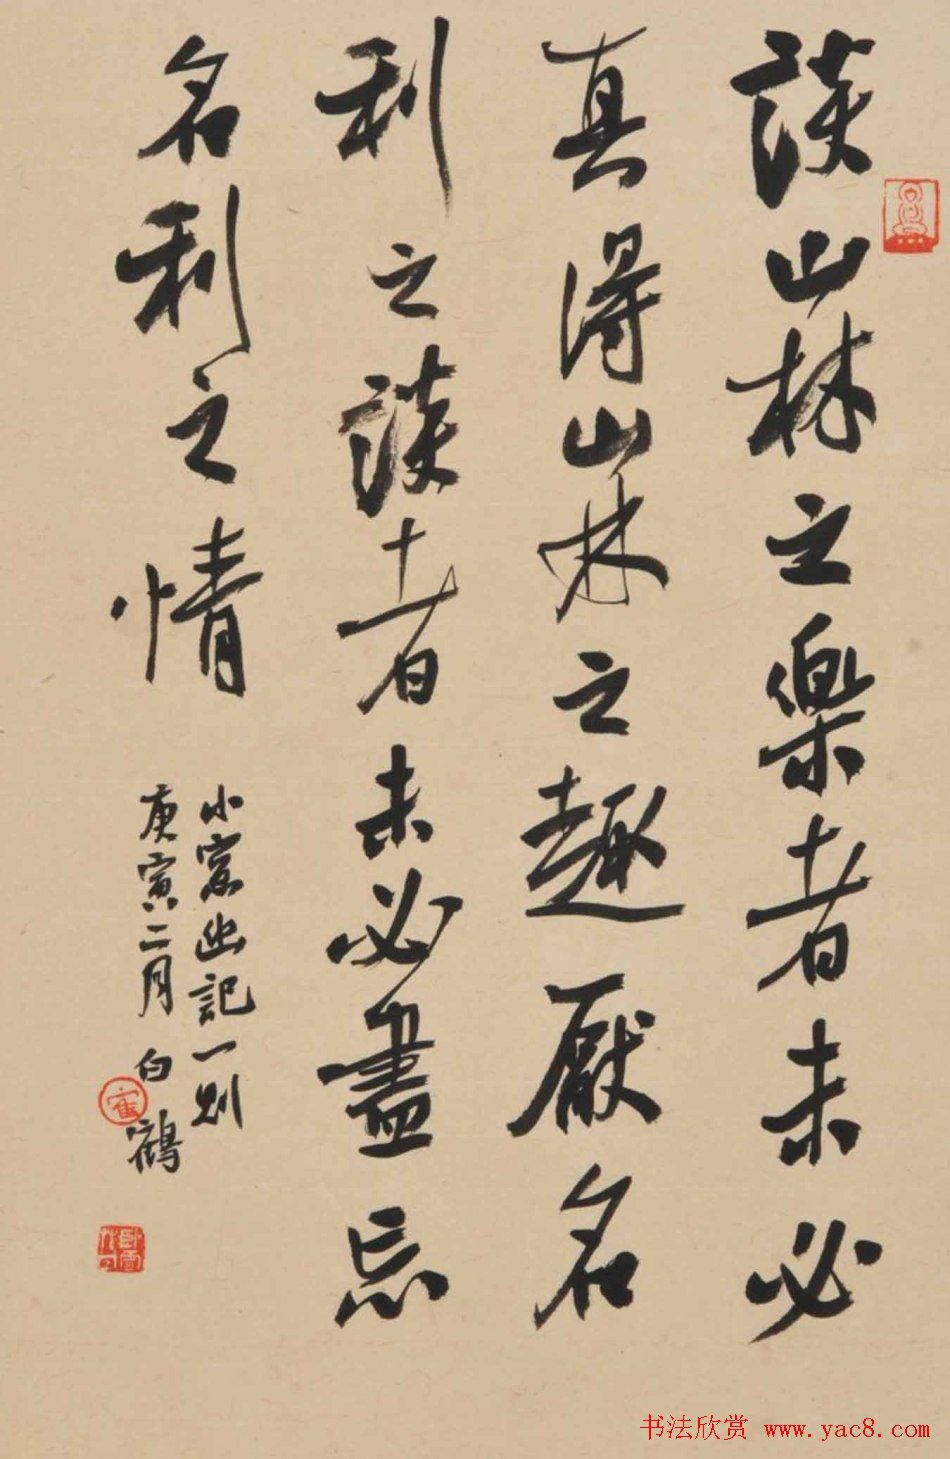 談山林之樂者未必
真得山林之趣厭名
利之談者未必盡忘
名利之情
小窓幽記一則
庚寅二月 白鶴
书法欣赏 www.yac8.com